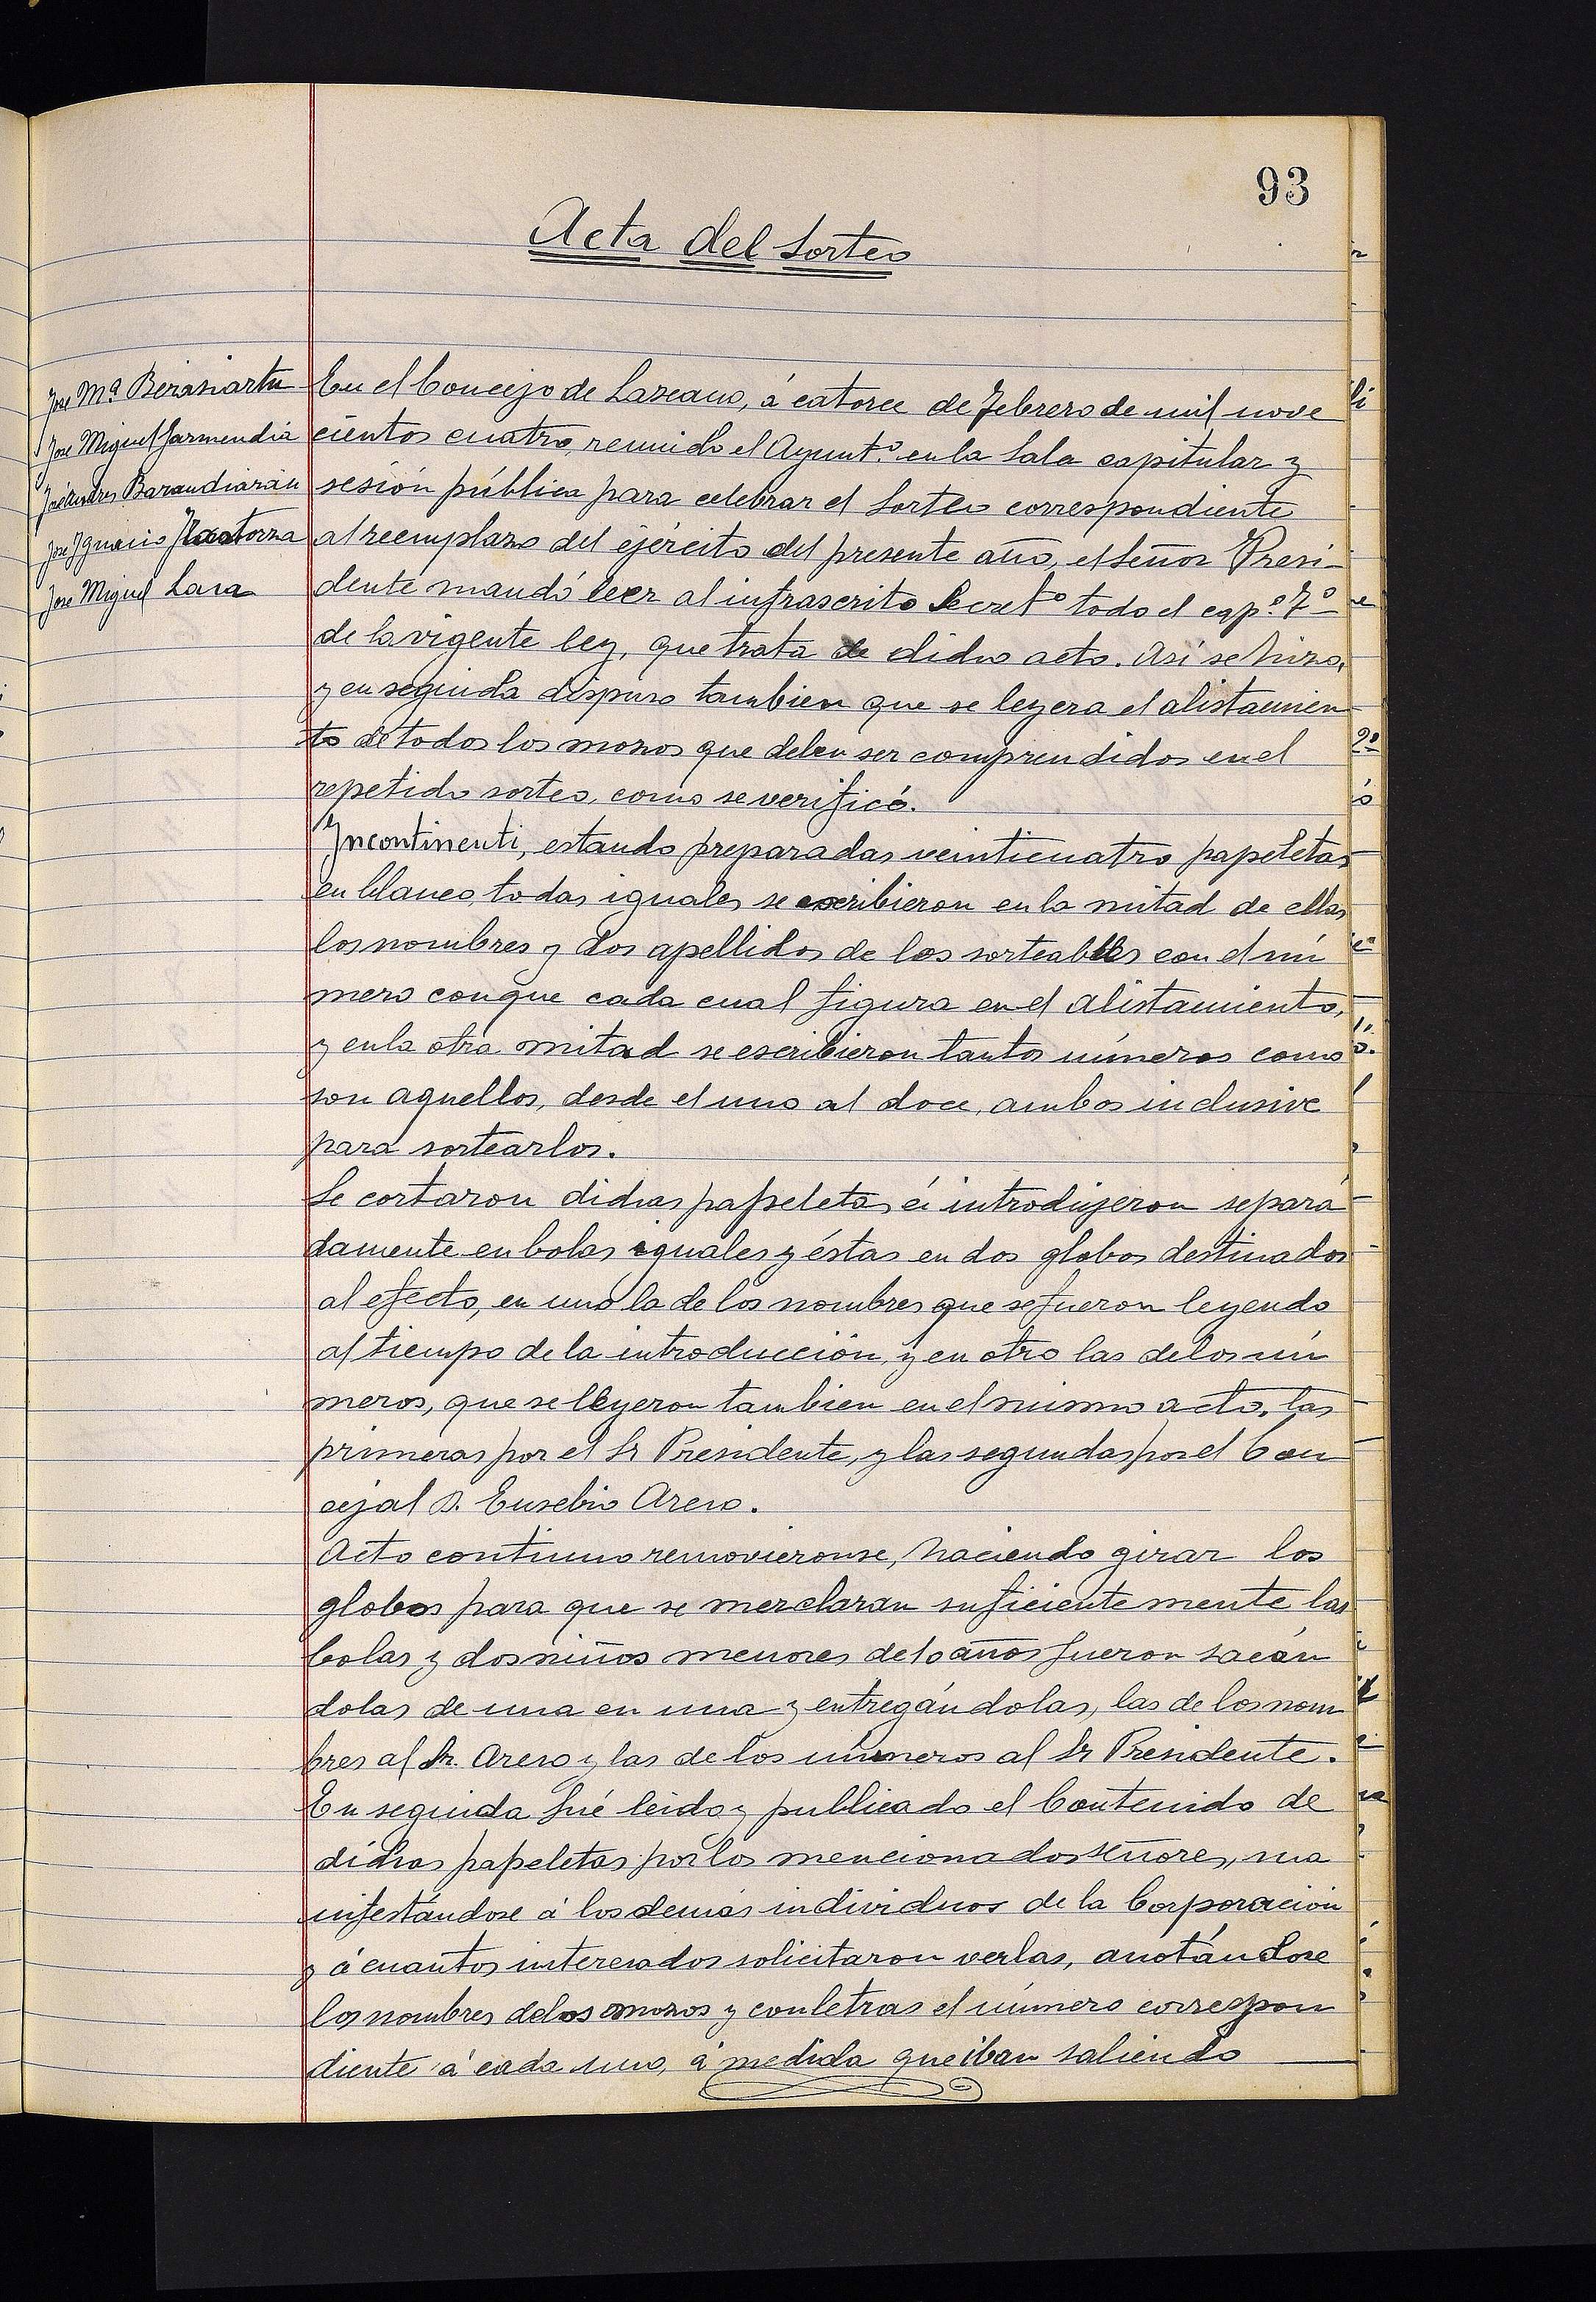 93
Acta del Sorteo
Jose Mª Berasiartu
Jose Miguel Garmendia
José Andres Barandiarán
José Ygnacio
Jose Miguel Lasa
En el Concejo de Lazcano, á catorce de Febrero de mil nove
cientos cuatro, reunido el Ayuntº en la Sala capitular y
sesión pública para celebrar el Sorteo correspondiente
al reemplazo del ejército del presente año, el Señor Presi-
dente mandó leer al infrascrito Secretº todo el capº 7º
de la vigente ley, que trata de dicho acto. Así se hizo,
y en seguida dispuso tambien que se leyera el alistamien
to de todos los mozos que deben ser comprendidos en el
repetido sorteo, como se verificó.
Yncontinenti, estando preparadas veinticuatro papeletas
en blanco, todas iguales, se escribieron en la mitad de ellas
los nombres y dos apellidos de los sorteables con el nú
mero con que cada cual figura en el alistamiento,
y en la otra mitad se escribieron tantos números como
son aquellos, desde el uno al doce, ambos inclusive
para sortearlos.
Se cortaron dichas papeletas é introdujeron separa
damente en bolas iguales y éstas en dos globos destinados
al efecto, en uno la de los nombres que se fueron leyendo
al tiempo de la introducción, y en otro las de los nú
meros, que se leyeron tambien en el mismo acto, las
primeras por el Sr Presidente, y las segundas por el Con
cejal D. Eusebio Areso.
Acto continuo removieronse, haciendo girar los
globos para que se mezclaran suficientemente las
bolas y dos niños menores de 10 años fueron sacán
dolas de una en una y entregándolas, las de los nom
bres al Sr. Areso y las de los números al Sr Presidente.
En seguida fué leido y publicado el Contenido de
dichas papeletas por los mencionados señores, ma
nifestándose á los demás individuos de la Corporación
y á cuantos interesados solicitaron verlas, anotándose
los nombres de los mozos y con letras el número correspon
diente á cada uno, á medida que iban saliendo